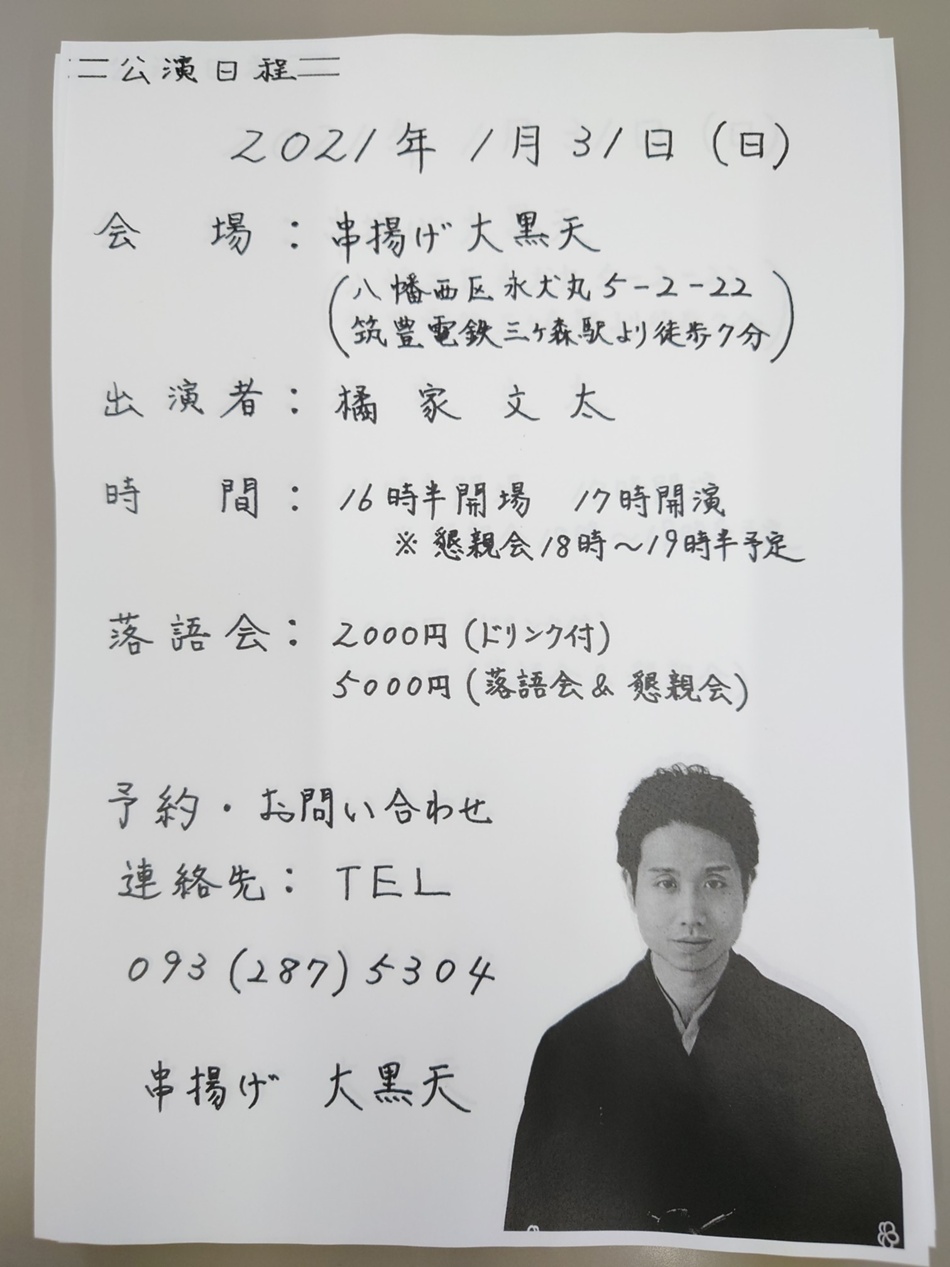 ==公演日程==
2021年1月31日(日)
会場:串揚げ大黒天
(八幡西区永犬丸5-2-22
筑豊電鉄三ヶ森駅より徒歩7分)
出演者:橘家文太
時間:16時半開場 17時開演
※懇親会18時〜19時半予定
落語会:2000円(ドリンク付)
5000円(落語会&懇親会)
予約・お問い合わせ
連絡先:TEL
093(287)5304
串揚げ 大黒天